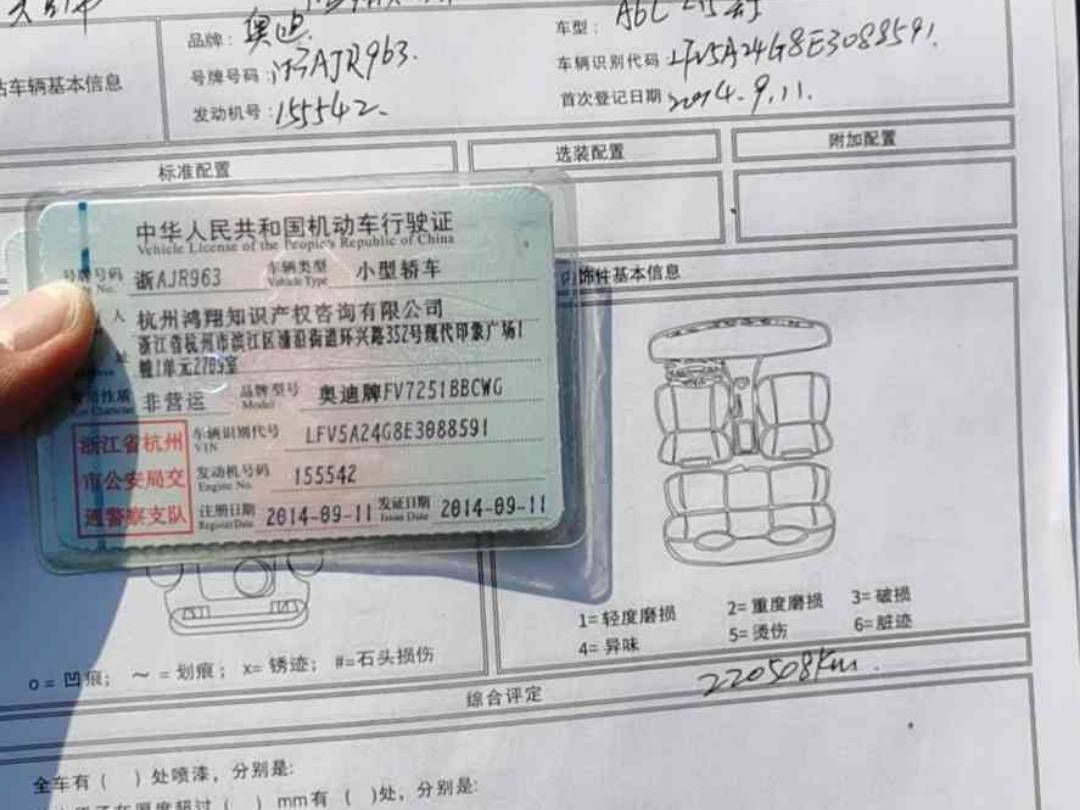 品牌：奥迪
车型：A6L
号牌号码：浙AJR963.
车辆识别代码：LFV5A24G8E3088591.
站车辆基本信息
发动机号：155542
首次登记日期 2014.9.11.
标准配置
选装配置
附加配置
中华人民共和国机动车行驶证
Vehicle License of the People's Republic of China
号牌号码 浙AJR963 车辆类型 小型轿车
No. Vehicle Type
人 杭州鸿翔知识产权咨询有限公司
址 浙江省杭州市滨江区浦沿街道环兴路352号现代印象广场1
幢1单元2709室
性质 非营运 品牌型号 奥迪牌FV7251BBCWG
Character Model
浙江省杭州
市公安局交
通警察支队
车辆识别代号 LFV5A24G8E3088591
VIN
发动机号码 155542
Engine No.
注册日期 2014-09-11 发证日期 2014-09-11
Register Date Issue Date
内饰件基本信息
1= 轻度磨损 2= 重度磨损 3= 破损
4= 异味 5= 烫伤 6= 脏迹
o = 凹痕； ～ = 划痕； x= 锈迹； #=石头损伤
综合评定
220508km.
全车有（ ）处喷漆，分别是:
（ ）mm有（ )处，分别是: